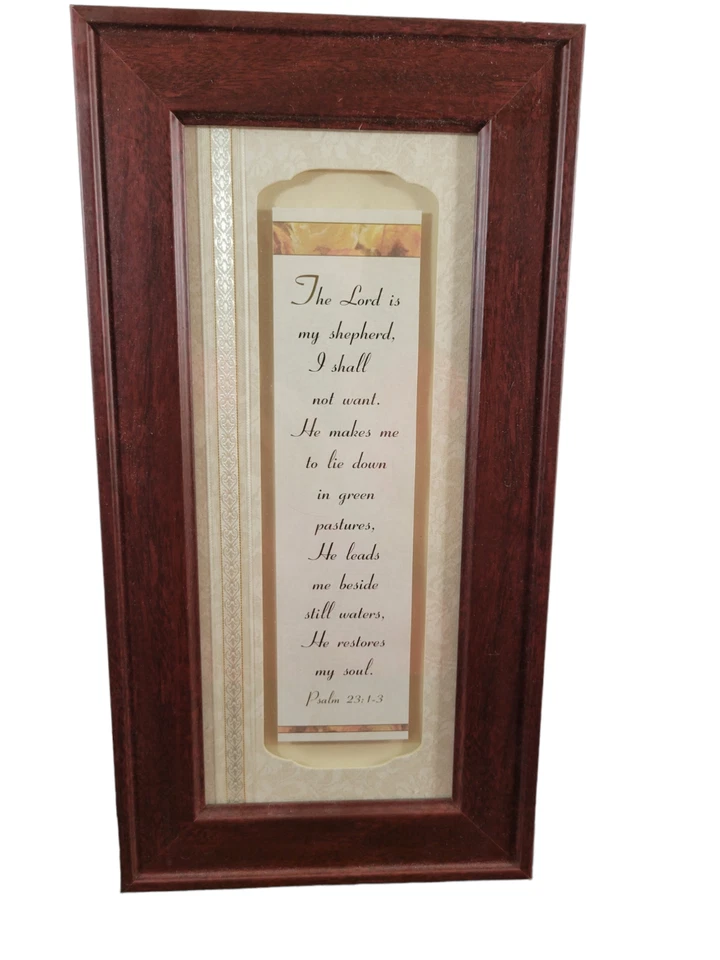 The Lord is
my shepherd,
I shall
not want.
He makes me
to lie down
in green
pastures,
He leads
me beside
still waters,
He restores
my soul.
Psalm 23:1-3